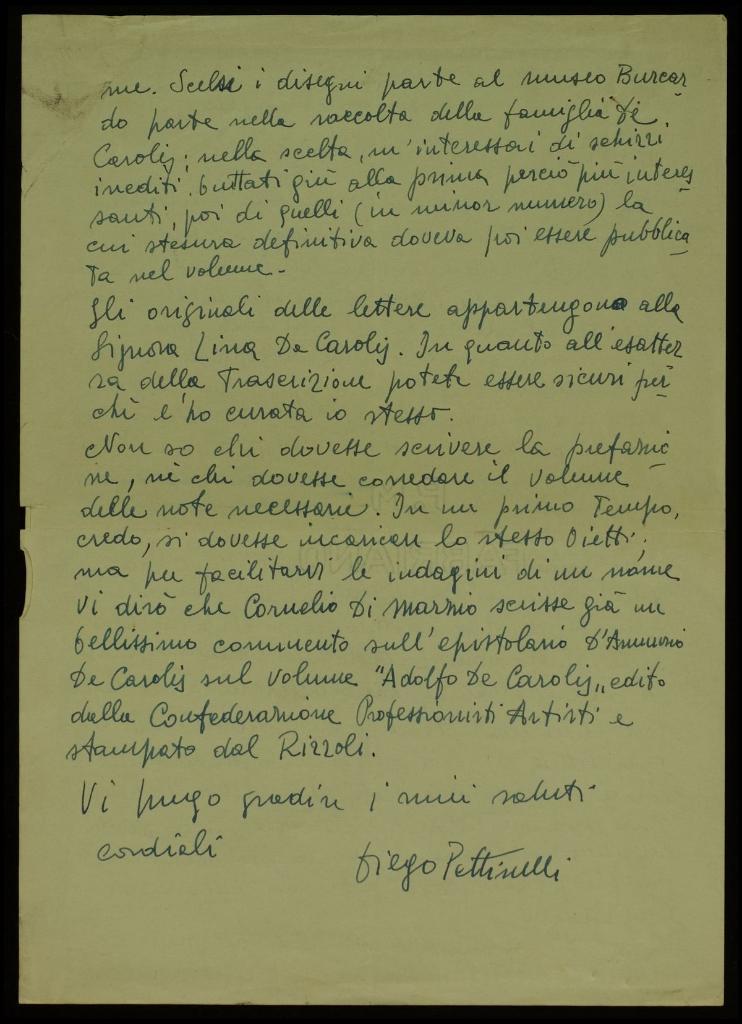 me. Scelsi i disegni parte al museo Burcar
do parte nella raccolta della famiglia De
Carolis; nella scelta, m'interessai di schizzi
inediti, buttati giù alla prima, perciò più interes
santi, poi di quelli (in minor numero) la
cui stesura definitiva doveva poi essere pubblica
ta nel volume -
Gli originali delle lettere appartengono alla
Signora Lina De Carolis. In quanto all'esattez
za della trascrizione potete essere sicuri per
chè l'ho curata io stesso.
Non so chi dovesse scrivere la prefazio
ne, nè chi dovesse corredare il volume
delle note necessarie. In un primo tempo,
credo, si dovesse incaricare lo stesso Oietti;
ma per facilitarvi le indagini di un nome
vi dirò che Cornelio Di Marzio scrisse già un
bellissimo commento sull'epistolario D'Annunzio
De Carolis sul volume "Adolfo De Carolis„ edito
dalla Confederazione Professionisti Artisti e
stampato dal Rizzoli.
Vi prego gradire i miei saluti
cordiali
Diego Pettinelli